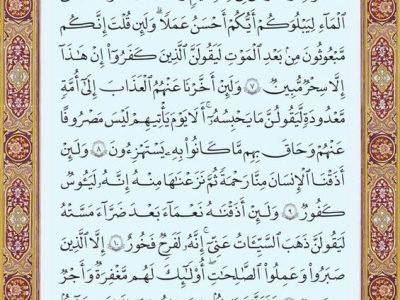 ٱلۡمَآءِ لِيَبۡلُوَكُمۡ أَيُّكُمۡ أَحۡسَنُ عَمَلٗاۗ وَلَئِن قُلۡتَ إِنَّكُم
مَّبۡعُوثُونَ مِنۢ بَعۡدِ ٱلۡمَوۡتِ لَيَقُولَنَّ ٱلَّذِينَ كَفَرُوٓاْ إِنۡ هَٰذَآ
إِلَّا سِحۡرٞ مُّبِينٞ ٧ وَلَئِنۡ أَخَّرۡنَا عَنۡهُمُ ٱلۡعَذَابَ إِلَىٰٓ أُمَّةٖ
مَّعۡدُودَةٖ لَّيَقُولُنَّ مَا يَحۡبِسُهُۥٓۗ أَلَا يَوۡمَ يَأۡتِيهِمۡ لَيۡسَ مَصۡرُوفًا
عَنۡهُمۡ وَحَاقَ بِهِم مَّا كَانُواْ بِهِۦ يَسۡتَهۡزِءُونَ ٨ وَلَئِنۡ
أَذَقۡنَا ٱلۡإِنسَٰنَ مِنَّا رَحۡمَةٗ ثُمَّ نَزَعۡنَٰهَا مِنۡهُ إِنَّهُۥ لَيَـُٔوسٞ
كَفُورٞ ٩ وَلَئِنۡ أَذَقۡنَٰهُ نَعۡمَآءَ بَعۡدَ ضَرَّآءَ مَسَّتۡهُ
لَيَقُولَنَّ ذَهَبَ ٱلسَّيِّـَٔاتُ عَنِّيٓۚ إِنَّهُۥ لَفَرِحٞ فَخُورٌ ١٠ إِلَّا ٱلَّذِينَ
صَبَرُواْ وَعَمِلُواْ ٱلصَّٰلِحَٰتِ أُوْلَٰٓئِكَ لَهُم مَّغۡفِرَةٞ وَأَجۡرٞ